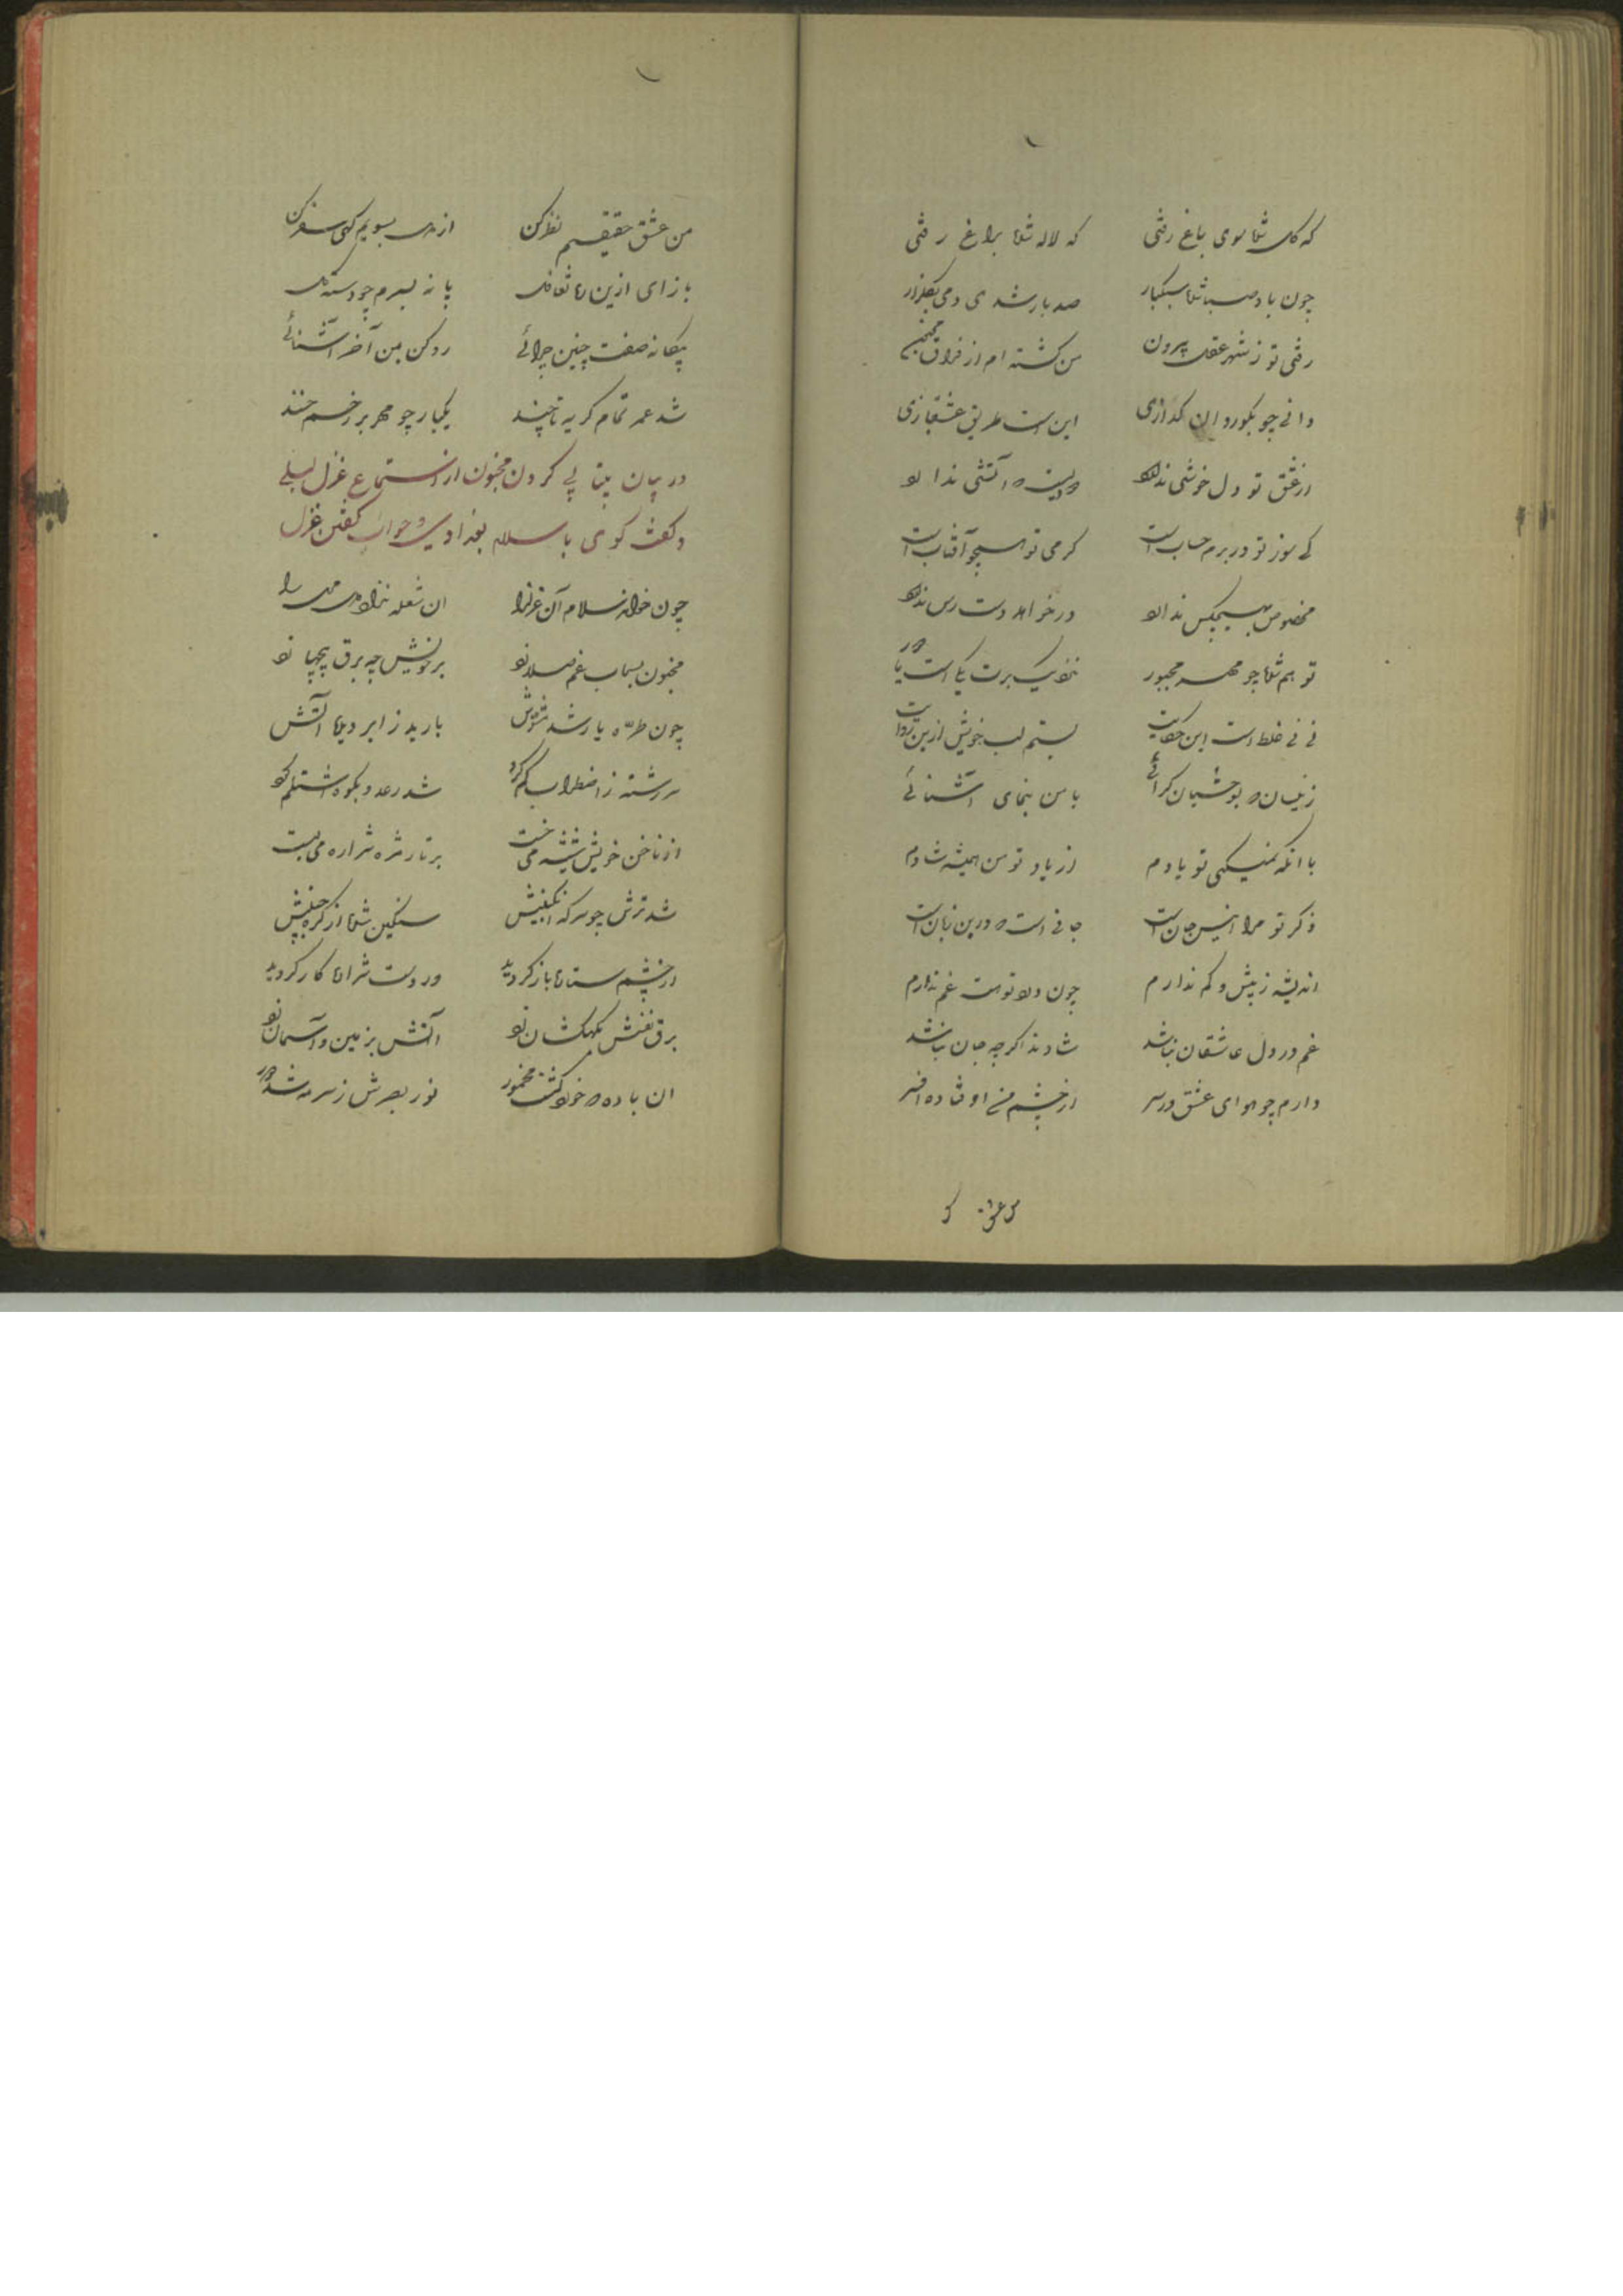 که گل شما سوی باغ رفتی که لاله شما براغ رفتی
چون باد صبا شما سبکبار صد بار شدی و می بگلزار
رفتی تو ز شهر عقل بیرون من گشته ام از فراق مجنون
دانی چو بگوردان گدازی این است طریق عشقبازی
از عشق تو دل خوشی ندارد آتشی ندارد
کی سوز تو در برم حساب است گرمی تو همچو آفتاب است
مخصوص بهیچکس ندارد در خواهد دست رس ندارد
تو هم شما چو مهر مجبور نزدیک برت یکی است
نی نی غلط است این حکایت بستم لب خویش ازین روایت
با من بنمای آشنائی
با آنکه نمیکنی تو یادم از یاد تو من همیشه شادم
ذکر تو مرا انیس جان است جانی است که درین زبان است
اندیشه ز بیش و کم ندارم چون درد تو هست غم ندارم
غم در دل عاشقان نباشد شادند اگرچه جان نباشد
دارم چو هوای عشق در سر از چشم من اوفتاده افسر
من عشق
من عشق حقیقیم نظر کن از مدرسه بسویم کهی سفر کن
باز ای ازین ره تغافل پا نه بسرم چو دسته گل
بیگانه صفت چنین چرائی رو کن بمن آخر آشنائی
شد عمر تمام گریه تا چند یکبار چو مهر بر رخم خند
در بیان بیتابی کردن مجنون از استماع غزل لیلی
و گفت گوی با سلام بغدادی و جواب گفتن غزل
چون خواند سلام آن غزل را ان شعله نژاد را
مجنون غم صلا زد بر خویش چه برق پیچ پا زد
چون طره یار شد مشوش بارید ز ابر دیده آتش
سررشته ز اضطراب گم کرد شد رعد و بکوه اشتلم کرد
از ناخن خویش تیشه می خست بر تار مژه شراره می بست
شد ترش چو سرکه انگبینش سنگین شما از گره جبینش
از چشم ستاره باز گردید در دست شراره کار گردید
برق نفسش بکهکشان زد آتش بزمین و آسمان زد
ان باده که خورد گشت مخمور نور بصرش ز سرمه شد دور